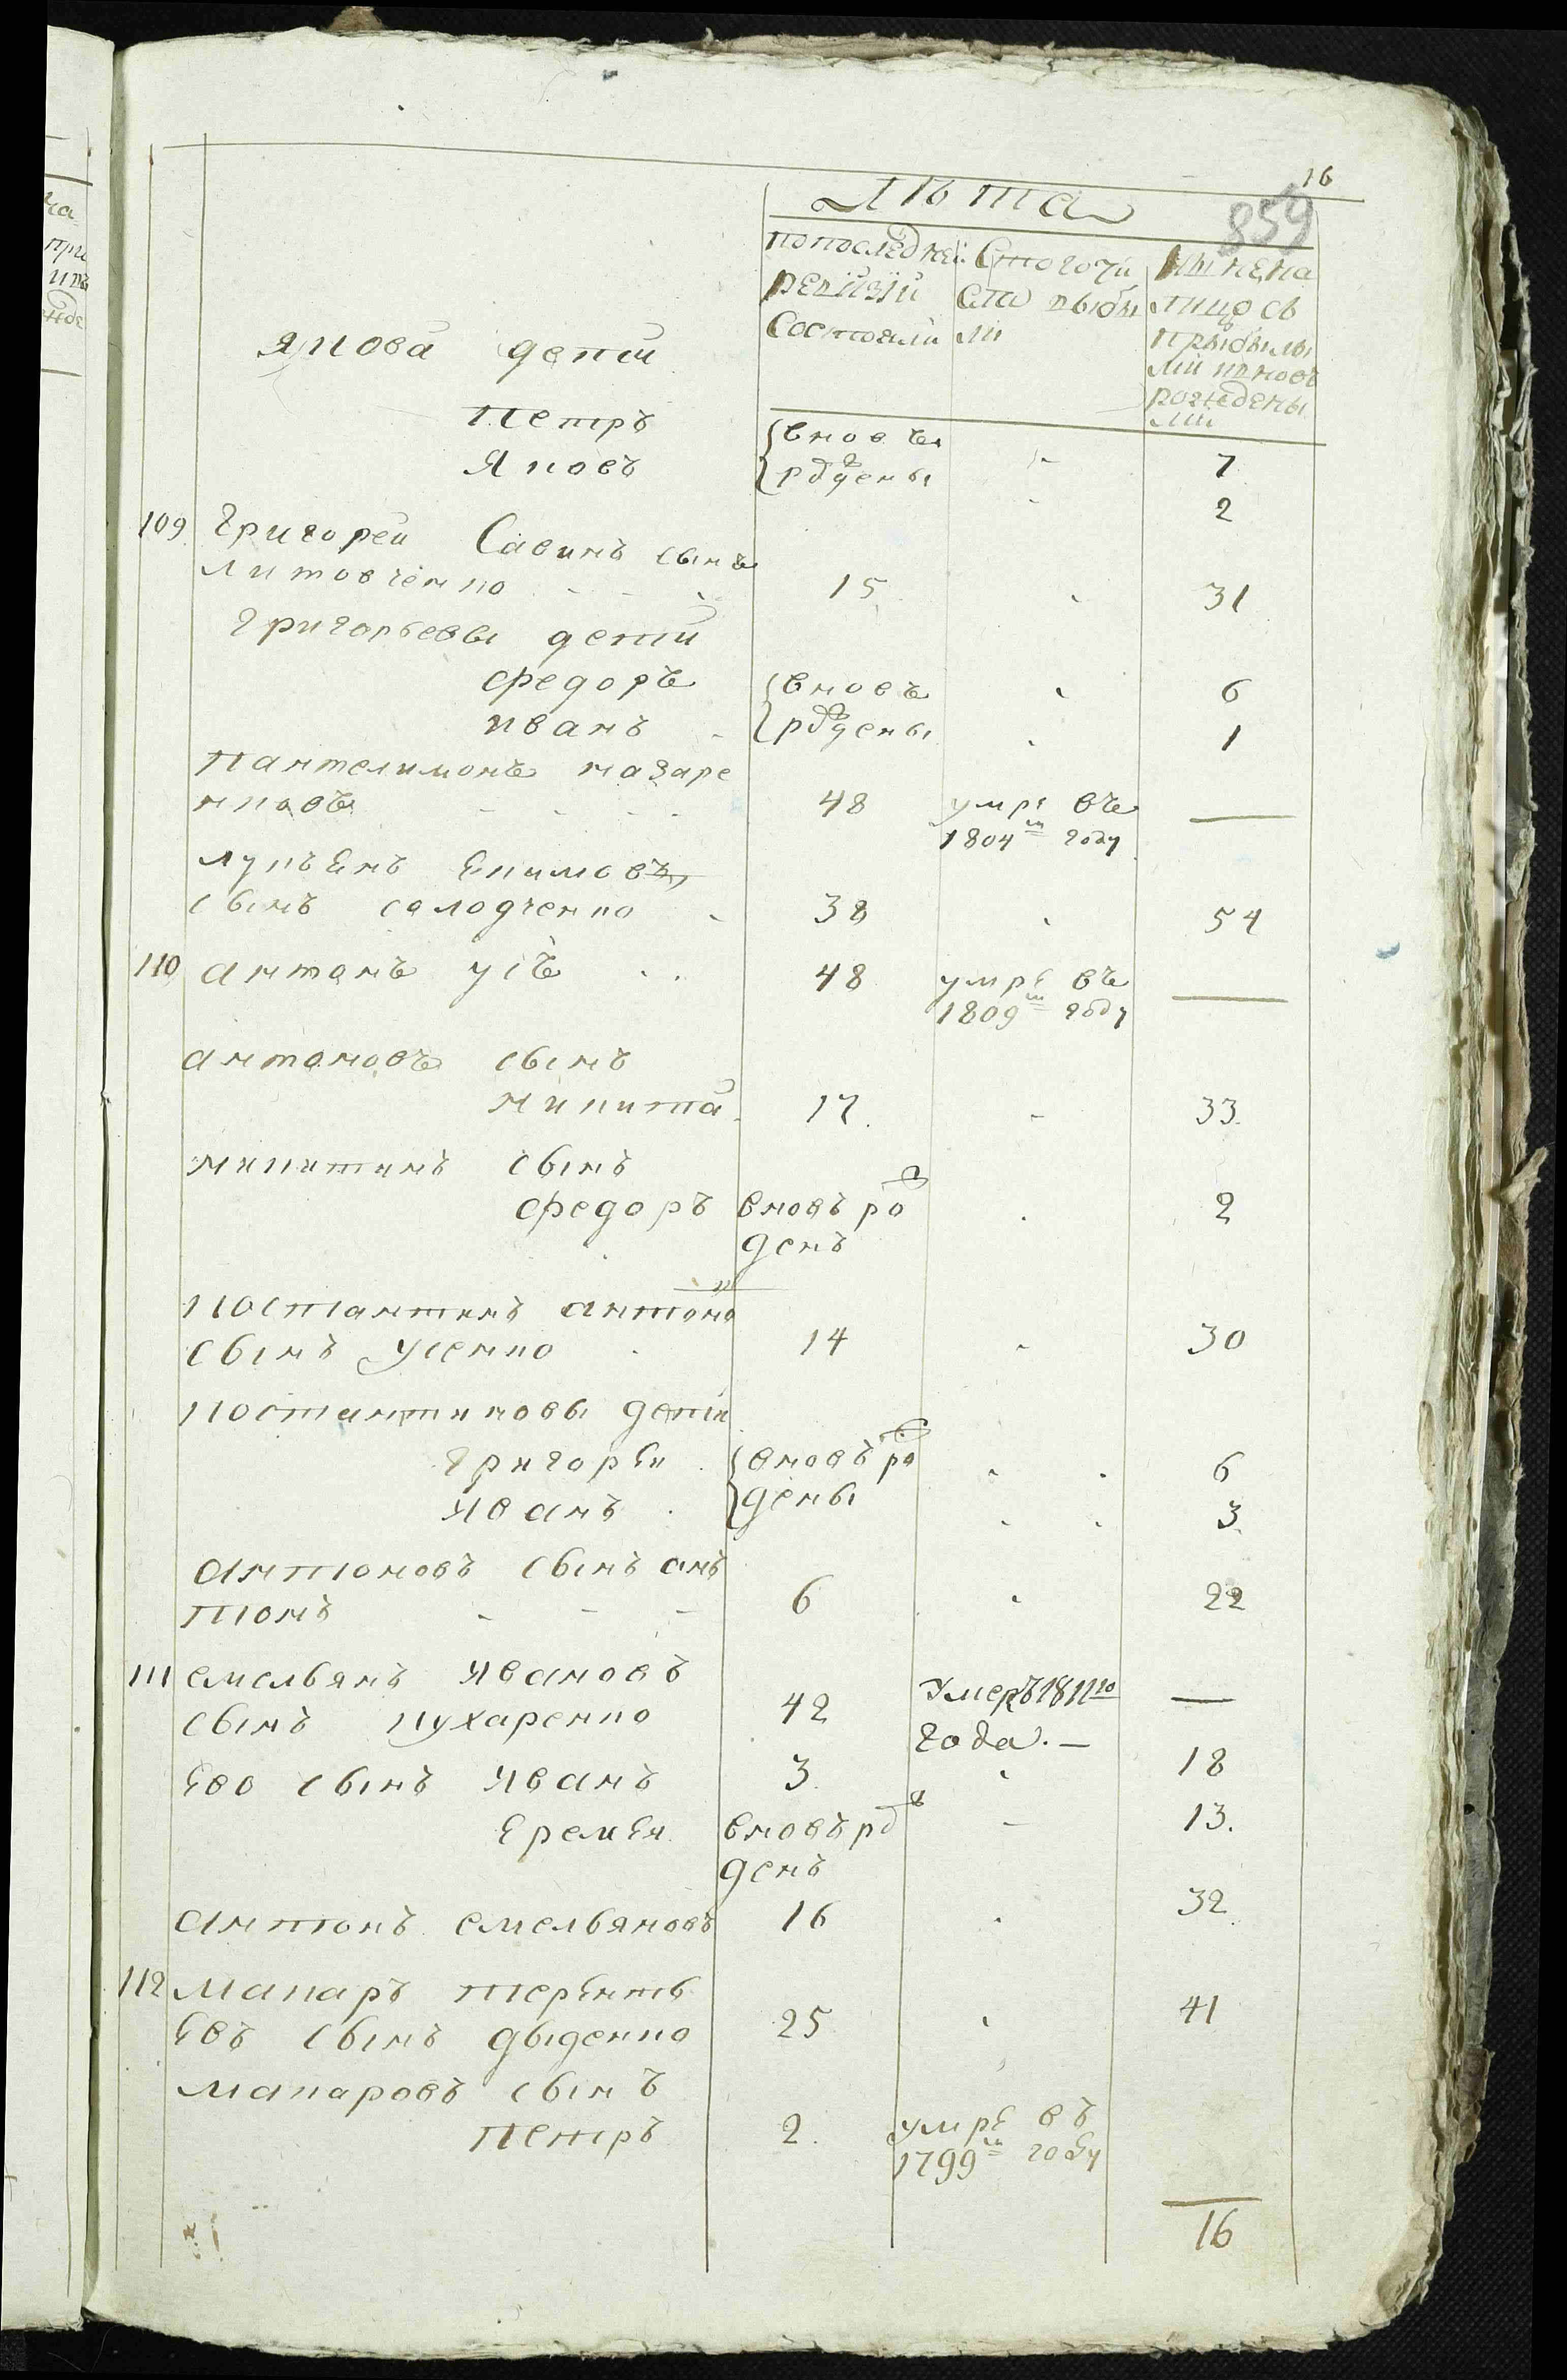 16
859
Лѣта
попоследней Стогочи нынена
ревизіи сла выбы лицо съ
состояли ли прибылы
ми и внов
рожедены
ми
Якова дети
Петръ {вновъ 7
Яковъ {рожденъı 2
109 Григореи Савинъ сынъ
литовченко - - - 15 31
Григорьевы дети
Федоръ {вновъ 6
иванъ {рожденъı 1
пантелимонъ назаре
нковъ - - - - 48 умре въ —
1804м году
лукъенъ Екимовъ
сынъ солодченко - 38 54
110 антонъ усъ 48 умре въ —
1809м году
антоновъ сынъ
микита 17. - 33.
микитинъ сынъ
Федоръ вновъ рож 2
денъ
костантинъ антонов
сынъ Усенко 14 30
костантиновы дети
Григорѣи {вновъ рож 6
Иванъ {дены 3.
антоновъ сынъ ан
тонъ - - - 6 22
111 емельянъ Ивановъ
сынъ кухаренко 42 Умеръ 1811го —
года. —
Ево сынъ Иванъ 3. 18
Еремѣи вновъ рож - 13.
денъ
антонъ емельяновъ 16 32
112 макаръ терѣнть
Евъ сынъ дыденко 25 41
макаровъ сынъ
петръ 2. умре въ
1799м году
16